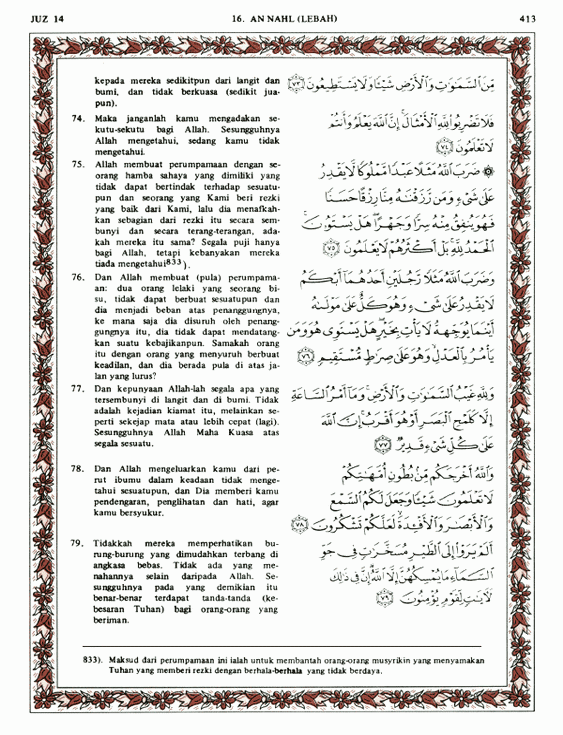 JUZ 14
16. AN NAHL (LEBAH)
413
kepada mereka sedikitpun dari langit dan
bumi, dan tidak berkuasa (sedikit jua-
pun).
74. Maka janganlah kamu mengadakan se-
kutu-sekutu bagi Allah. Sesungguhnya
Allah mengetahui, sedang kamu tidak
mengetahui.
75. Allah membuat perumpamaan dengan se-
orang hamba sahaya yang dimiliki yang
tidak dapat bertindak terhadap sesuatu-
pun dan seorang yang Kami beri rezki
yang baik dari Kami, lalu dia menafkah-
kan sebagian dari rezki itu secara sem-
bunyi dan secara terang-terangan, ada-
kah mereka itu sama? Segala puji hanya
bagi Allah, tetapi kebanyakan mereka
tiada mengetahui833).
76. Dan Allah membuat (pula) perumpama-
an: dua orang lelaki yang seorang bi-
su, tidak dapat berbuat sesuatupun dan
dia menjadi beban atas penanggungnya,
ke mana saja dia disuruh oleh penang-
gungnya itu, dia tidak dapat mendatang-
kan suatu kebajikanpun. Samakah orang
itu dengan orang yang menyuruh berbuat
keadilan, dan dia berada pula di atas ja-
lan yang lurus?
77. Dan kepunyaan Allah-lah segala apa yang
tersembunyi di langit dan di bumi. Tidak
adalah kejadian kiamat itu, melainkan se-
perti sekejap mata atau lebih cepat (lagi).
Sesungguhnya Allah Maha Kuasa atas
segala sesuatu.
78. Dan Allah mengeluarkan kamu dari pe-
rut ibumu dalam keadaan tidak menge-
tahui sesuatupun, dan Dia memberi kamu
pendengaran, penglihatan dan hati, agar
kamu bersyukur.
79. Tidakkah mereka memperhatikan bu-
rung-burung yang dimudahkan terbang di
angkasa bebas. Tidak ada yang me-
nahannya selain daripada Allah. Se-
sungguhnya pada yang demikian itu
benar-benar terdapat tanda-tanda (ke-
besaran Tuhan) bagi orang-orang yang
beriman.
مِّنَ ٱلسَّمَٰوَٰتِ وَٱلْأَرْضِ شَيْـًٔا وَلَا يَسْتَطِيعُونَ ﴿٧٣﴾
فَلَا تَضْرِبُوا۟ لِلَّهِ ٱلْأَمْثَالَ إِنَّ ٱللَّهَ يَعْلَمُ وَأَنتُمْ
لَا تَعْلَمُونَ ﴿٧٤﴾
۞ ضَرَبَ ٱللَّهُ مَثَلًا عَبْدًا مَّمْلُوكًا لَّا يَقْدِرُ
عَلَىٰ شَىْءٍ وَمَن رَّزَقْنَٰهُ مِنَّا رِزْقًا حَسَنًا
فَهُوَ يُنفِقُ مِنْهُ سِرًّا وَجَهْرًا هَلْ يَسْتَوُۥنَ
ٱلْحَمْدُ لِلَّهِ بَلْ أَكْثَرُهُمْ لَا يَعْلَمُونَ ﴿٧٥﴾
وَضَرَبَ ٱللَّهُ مَثَلًا رَّجُلَيْنِ أَحَدُهُمَآ أَبْكَمُ
لَا يَقْدِرُ عَلَىٰ شَىْءٍ وَهُوَ كَلٌّ عَلَىٰ مَوْلَىٰهُ
أَيْنَمَا يُوَجِّههُّ لَا يَأْتِ بِخَيْرٍ هَلْ يَسْتَوِى هُوَ وَمَن
يَأْمُرُ بِٱلْعَدْلِ وَهُوَ عَلَىٰ صِرَٰطٍ مُّسْتَقِيمٍ ﴿٧٦﴾
وَلِلَّهِ غَيْبُ ٱلسَّمَٰوَٰتِ وَٱلْأَرْضِ وَمَآ أَمْرُ ٱلسَّاعَةِ
إِلَّا كَلَمْحِ ٱلْبَصَرِ أَوْ هُوَ أَقْرَبُ إِنَّ ٱللَّهَ
عَلَىٰ كُلِّ شَىْءٍ قَدِيرٌ ﴿٧٧﴾
وَٱللَّهُ أَخْرَجَكُم مِّنۢ بُطُونِ أُمَّهَٰتِكُمْ
لَا تَعْلَمُونَ شَيْـًٔا وَجَعَلَ لَكُمُ ٱلسَّمْعَ
وَٱلْأَبْصَٰرَ وَٱلْأَفْـِٔدَةَ لَعَلَّكُمْ تَشْكُرُونَ ﴿٧٨﴾
أَلَمْ يَرَوْا۟ إِلَى ٱلطَّيْرِ مُسَخَّرَٰتٍ فِى جَوِّ
ٱلسَّمَآءِ مَا يُمْسِكُهُنَّ إِلَّا ٱللَّهُ إِنَّ فِى ذَٰلِكَ
لَءَايَٰتٍ لِّقَوْمٍ يُؤْمِنُونَ ﴿٧٩﴾
833). Maksud dari perumpamaan ini ialah untuk membantah orang-orang musyrikin yang menyamakan
Tuhan yang memberi rezki dengan berhala-berhala yang tidak berdaya.